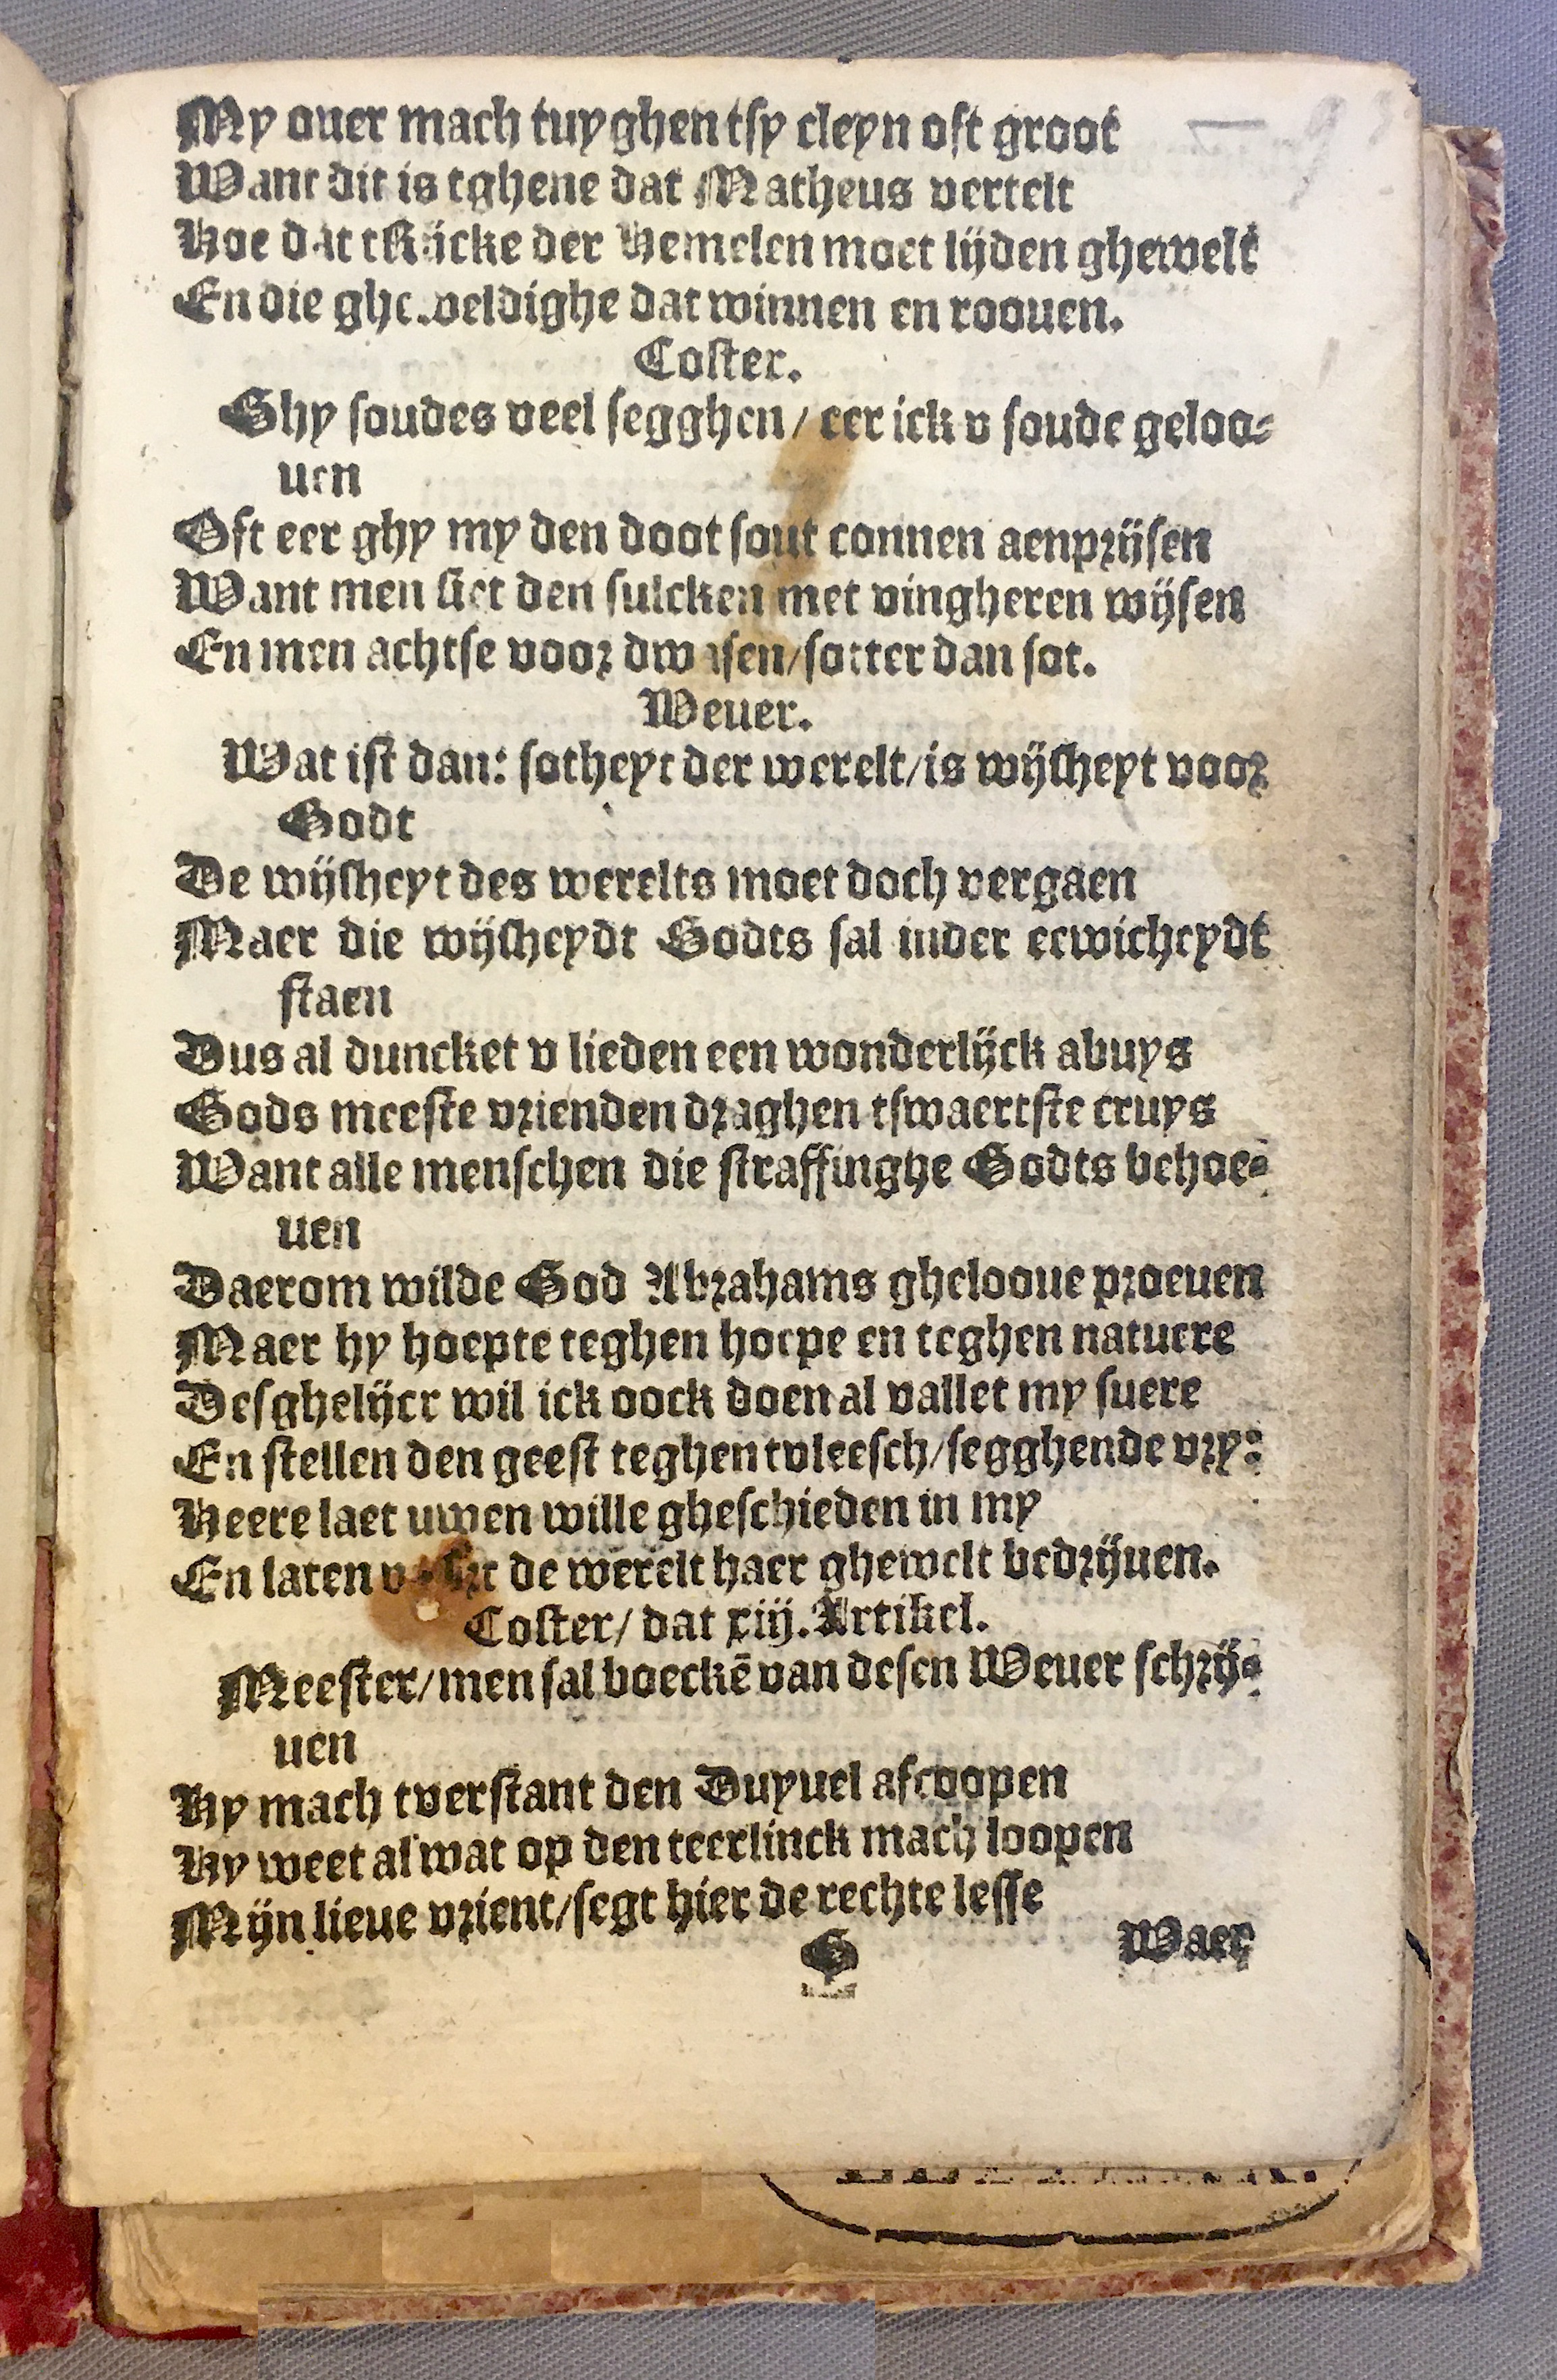 My ouer mach tuyghen tsy cleyn oft groot
Want dit is tghene dat Matheus vertelt
Hoe dat tRijcke der Hemelen moet lijden ghewelt
En die gheweldighe dat winnen en roouen.
Coster.
Ghy soudes veel segghen / eer ick v soude geloo-
uen
Oft eer ghy my den doot sout connen aenprijsen
Want men siet den sulcken met vingheren wijsen
En men achtse voor dwasen/sotter dan sot.
Weuer.
Wat ist dan: sotheyt der werelt/is wijsheyt voor
Godt
De wijsheyt des werelts moet doch vergaen
Maer die wijsheydt Godts sal inder eewicheydt
staen
Dus al duncket v lieden een wonderlijck abuys
Gods meeste vrienden draghen tswaertste cruys
Want alle menschen die straffinghe Godts behoe-
uen
Daerom wilde God Abrahams ghelooue proeuen
Maer hy hoepte teghen hoepe en teghen natuere
Desghelijcx wil ick oock doen al vallet my suere
En stellen den geest teghen tvleesch/segghende vry:
Heere laet uwen wille gheschieden in my
En laten de werelt haer ghewelt bedrijuen.
Coster/ dat xiij. Artikel.
Meester/men sal boeckē van desen Weuer schrij-
uen
Hy mach tverstant den Duyuel afcoopen
Hy weet al wat op den teerlinck mach loopen
Mijn lieue vrient/segt hier de rechte lesse
G
Waer